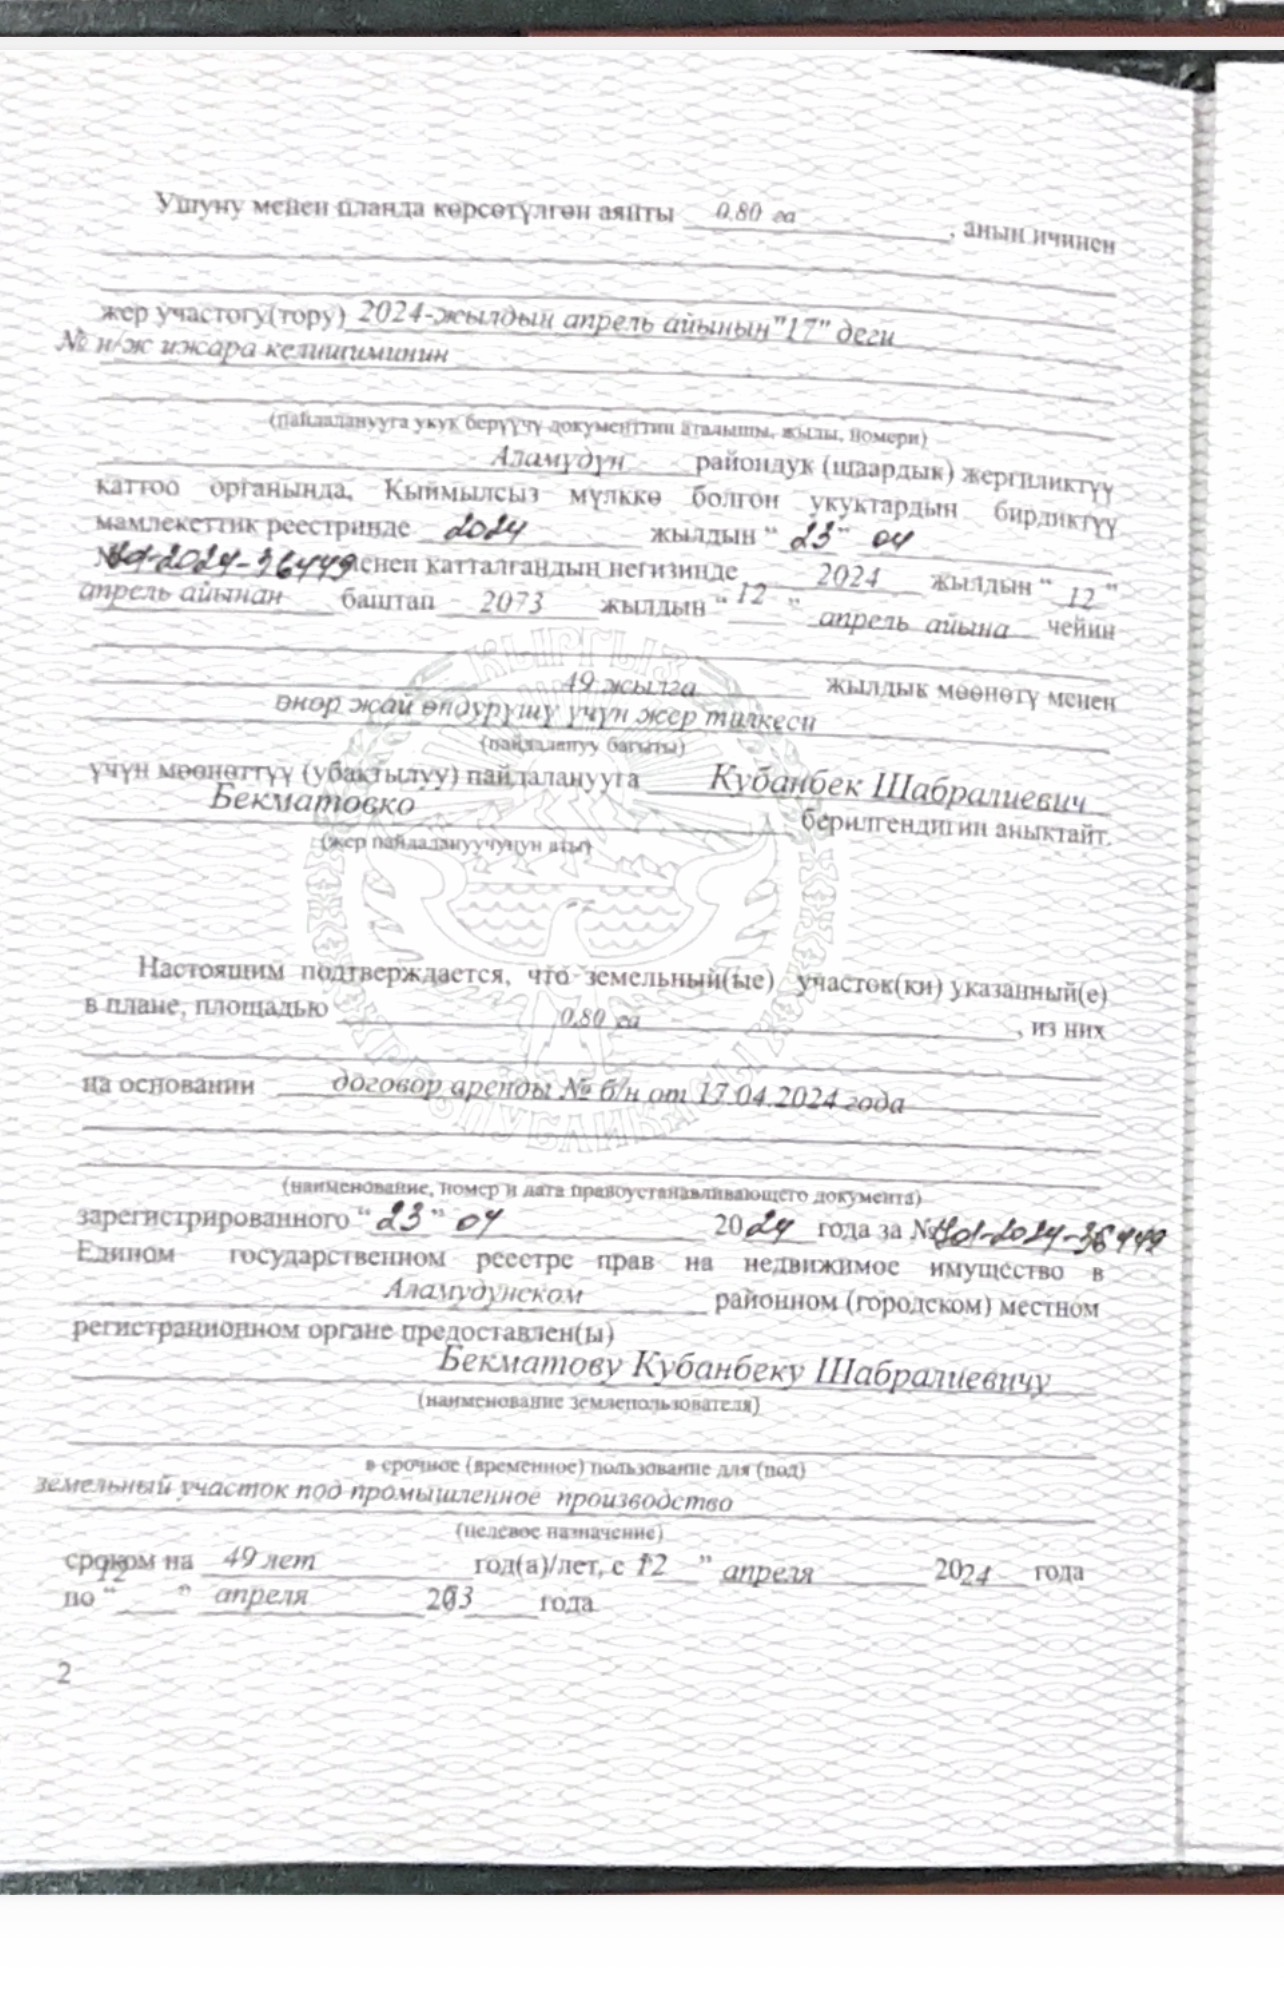 Ушуну менен планда көрсөтүлгөн аянты 0.80 га , анын ичинен
жер участогу(тору) 2024-жылдын апрель айынын "17" деги
№ н/ж ижара келишиминин
(пайдаланууга укук берүүчү документтин аталышы, жылы, номери)
Аламүдүн райондук (шаардык) жергиликтүү
каттоо органында, Кыймылсыз мүлккө болгон укуктардын бирдиктүү
мамлекеттик реестринде 2024 жылдын " 23 " 04
менен катталгандын негизинде 2024 жылдын " 12 "
апрель айынан баштап 2073 жылдын " 12 " апрель айына чейин
49 жылга жылдык мөөнөтү менен
өнөр жай өндүрүшү үчүн жер тилкеси
(пайдалануу багыты)
үчүн мөөнөттүү (убактылуу) пайдаланууга Кубанбек Шабралиевич
Бекматовко берилгендигин аныктайт.
(жер пайдалануучунун аты)
КЫРГЫЗ
Настоящим подтверждается, что земельный(ые) участок(ки) указанный(е)
в плане, площадью 0,80 га , из них
на основании договор аренды № б/н от 17.04.2024 года
(наименование, номер и дата правоустанавливающего документа)
зарегистрированного " 23 " 04 2024 года за №
Едином государственном реестре прав на недвижимое имущество в
Аламудунском районном (городском) местном
регистрационном органе предоставлен(ы)
Бекматову Кубанбеку Шабралиевичу
(наименование землепользователя)
в срочное (временное) пользование для (под)
земельный участок под промышленное производство
(целевое назначение)
сроком на 49 лет год(а)/лет, с 12 " апреля 2024 года
по " 12 " апреля 2073 года
2